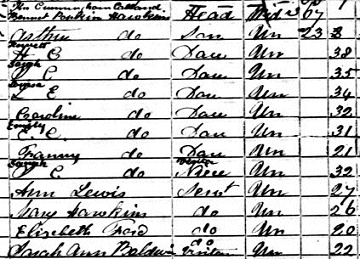 Cunningham
Bennet Hawkins Head Wid 67
Arthur do Son Un 23
Harriett
H E do Dau Un 38
Sarah
S E do Dau Un 35
Louisa
L E do Dau Un 34
Caroline do Dau Un 32
Emily
E. E. do Dau Un 31
Franny do Dau Un 21
Sarah Visitor
S E. do Niece Un 32
Ann Lewis Servt Un 27
Mary Hawkins do Un 26
Elizabeth Ford do Un 20
Sarah Ann Baldwin do Visitor Un 22